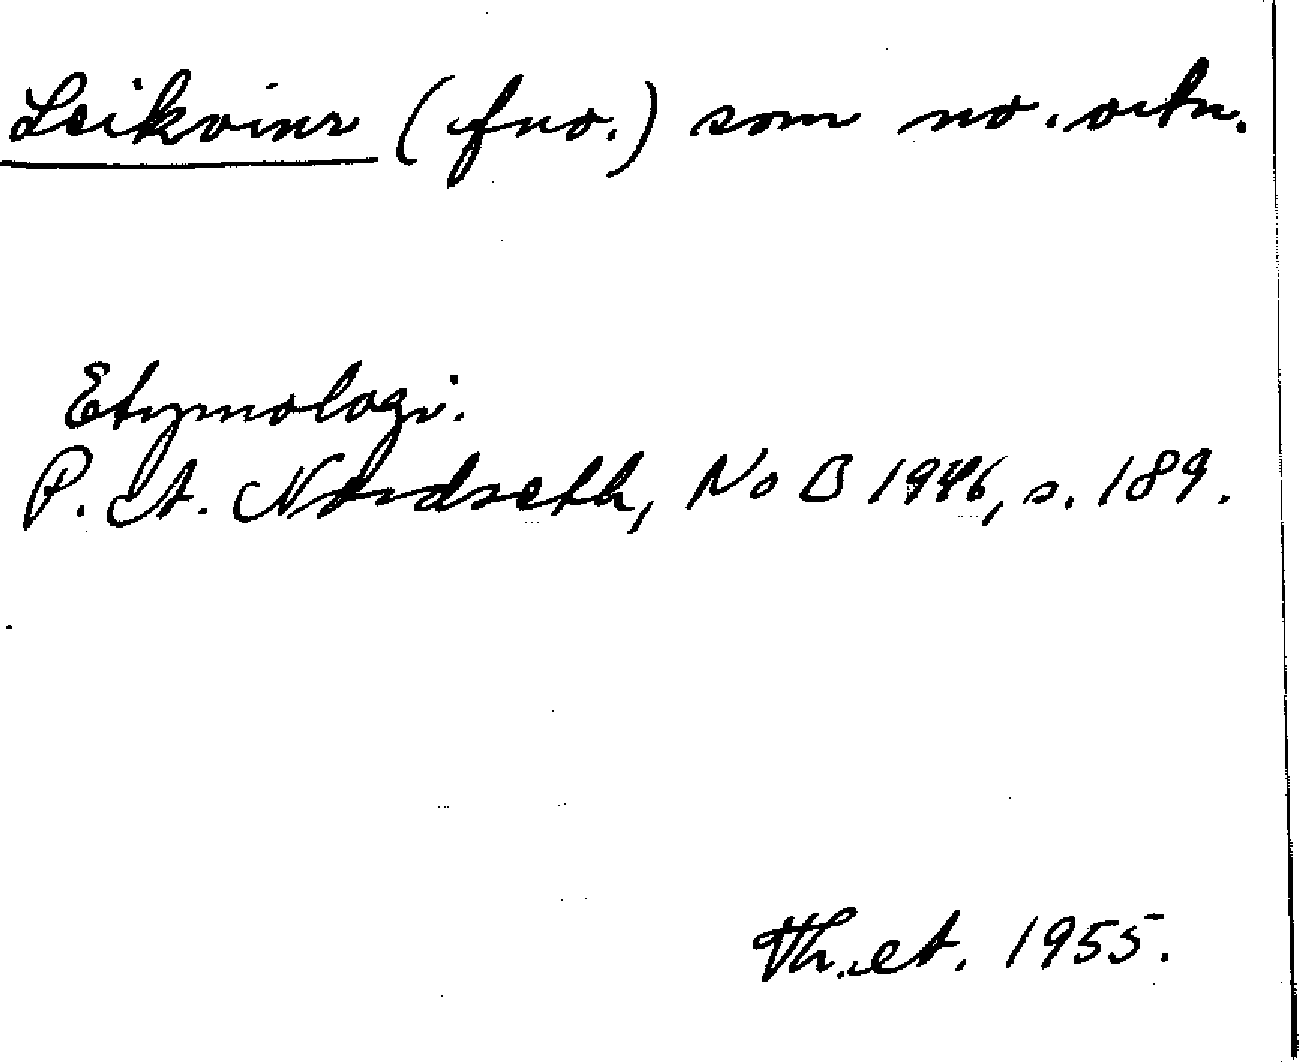 Leikvinr (fno.) som no. ortn.
Etymologi.
P. A. Nordseth, NoB 1946, s. 189.
Th. A. 1955.